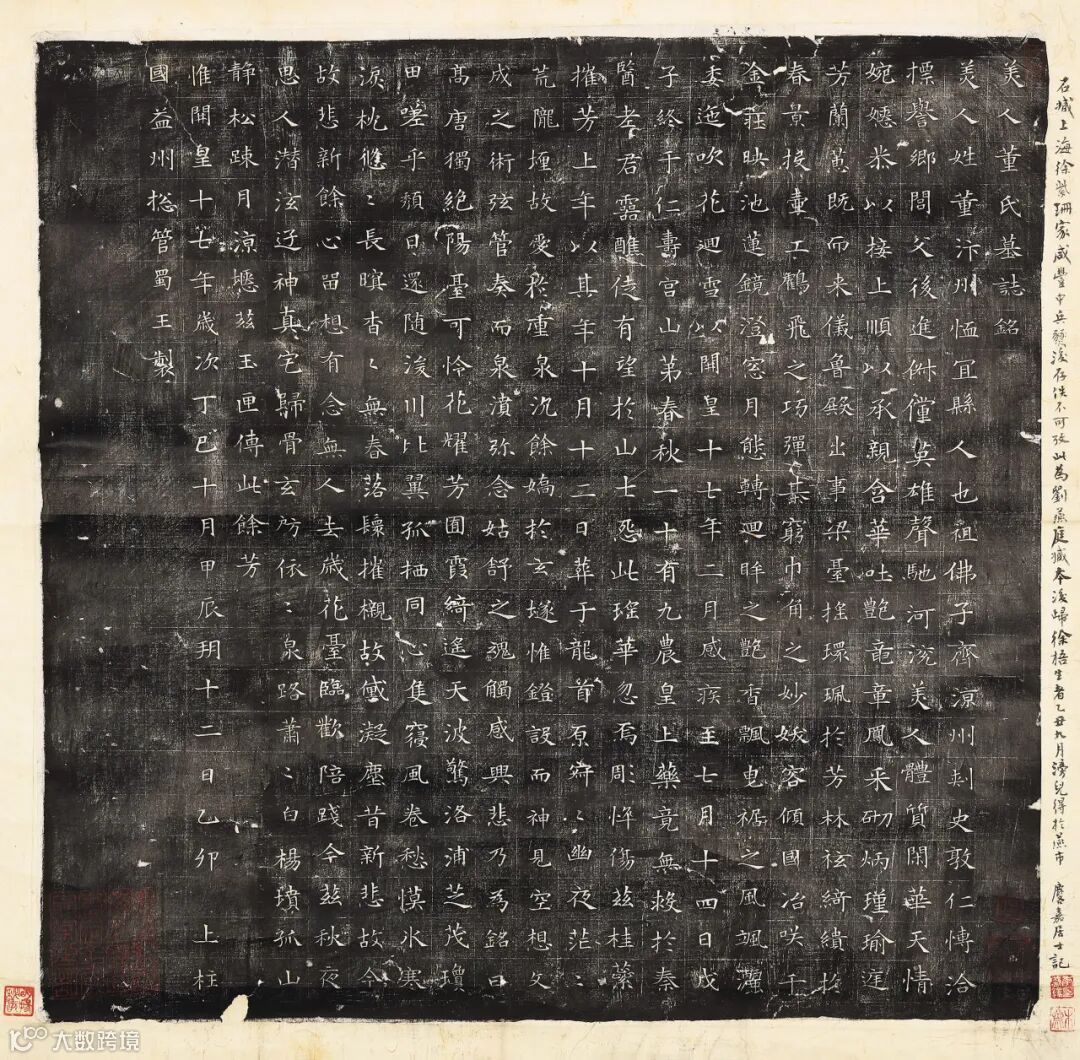 石藏上海徐紫珊家咸豐中兵燹後存佚不可攷此為劉燕庭藏本後歸徐梧生者乙丑九月滂兒得於燕市 麐嘉居士記
美人董氏墓誌銘
美人姓董汴州恤宜縣人也祖佛子齊涼州刾史敦仁慱洽
標譽鄉閭父後進俶儻英雄聲馳河渷美人體質閑華天情
婉嫕恭以接上順以承親含華吐艷竜章鳳采砌炳瑾瑜𨓍
芳蘭蕙既而来儀魯殿出事梁臺搖環珮於芳林袨綺繢扵
春景投壷工鶴飛之巧彈棊窮巾角之妙妖容傾國冶咲千
金莊映池蓮鏡澄窓月態轉迴眸之艷香飄曵裾之風颯灑
委迤吹花迴雪以開皇十七年二月感疾至七月十四日戊
子終于仁壽宮山苐春秋一十有九農皇上藥竟無救於秦
醫老君靈醮徒有望於山士怨此瑤華忽焉彫悴傷茲桂蘂
摧芳上年以其年十月十二日葬于龍首原寂〻幽夜茫〻
荒隴埋故愛扵重泉沉餘嬌於玄墜惟鐙設而神見空想文
成之術弦管奏而泉濆弥念姑舒之魂觸感興悲乃為銘曰
髙唐獨絕陽臺可怜花耀芳囿霞綺遙天波驚洛浦芝茂瓊
田嗟乎頽日還随湲川比翼孤栖同心隻寝風卷愁慔氷寒
淚枕悠〻長暝杳〻無春落鬟摧櫬故黛凝塵昔新悲故今
故悲新餘心留想有念無人去歳花臺臨歡陪踐今茲秋夜
思人潜泫迂神真宅歸骨玄房依〻泉路蕭〻白楊墳孤山
静松踈月涼瘱茲玉匣傳此餘芳
惟開皇十七年歳次丁巳十月甲辰玥十二日乙卯 上柱
國益州㧾管蜀王製
大数跨境